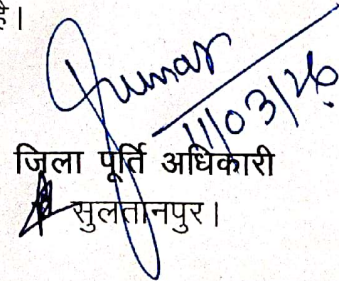 है।
Kumar
11/03/26
जिला पूर्ति अधिकारी
सुलतानपुर।